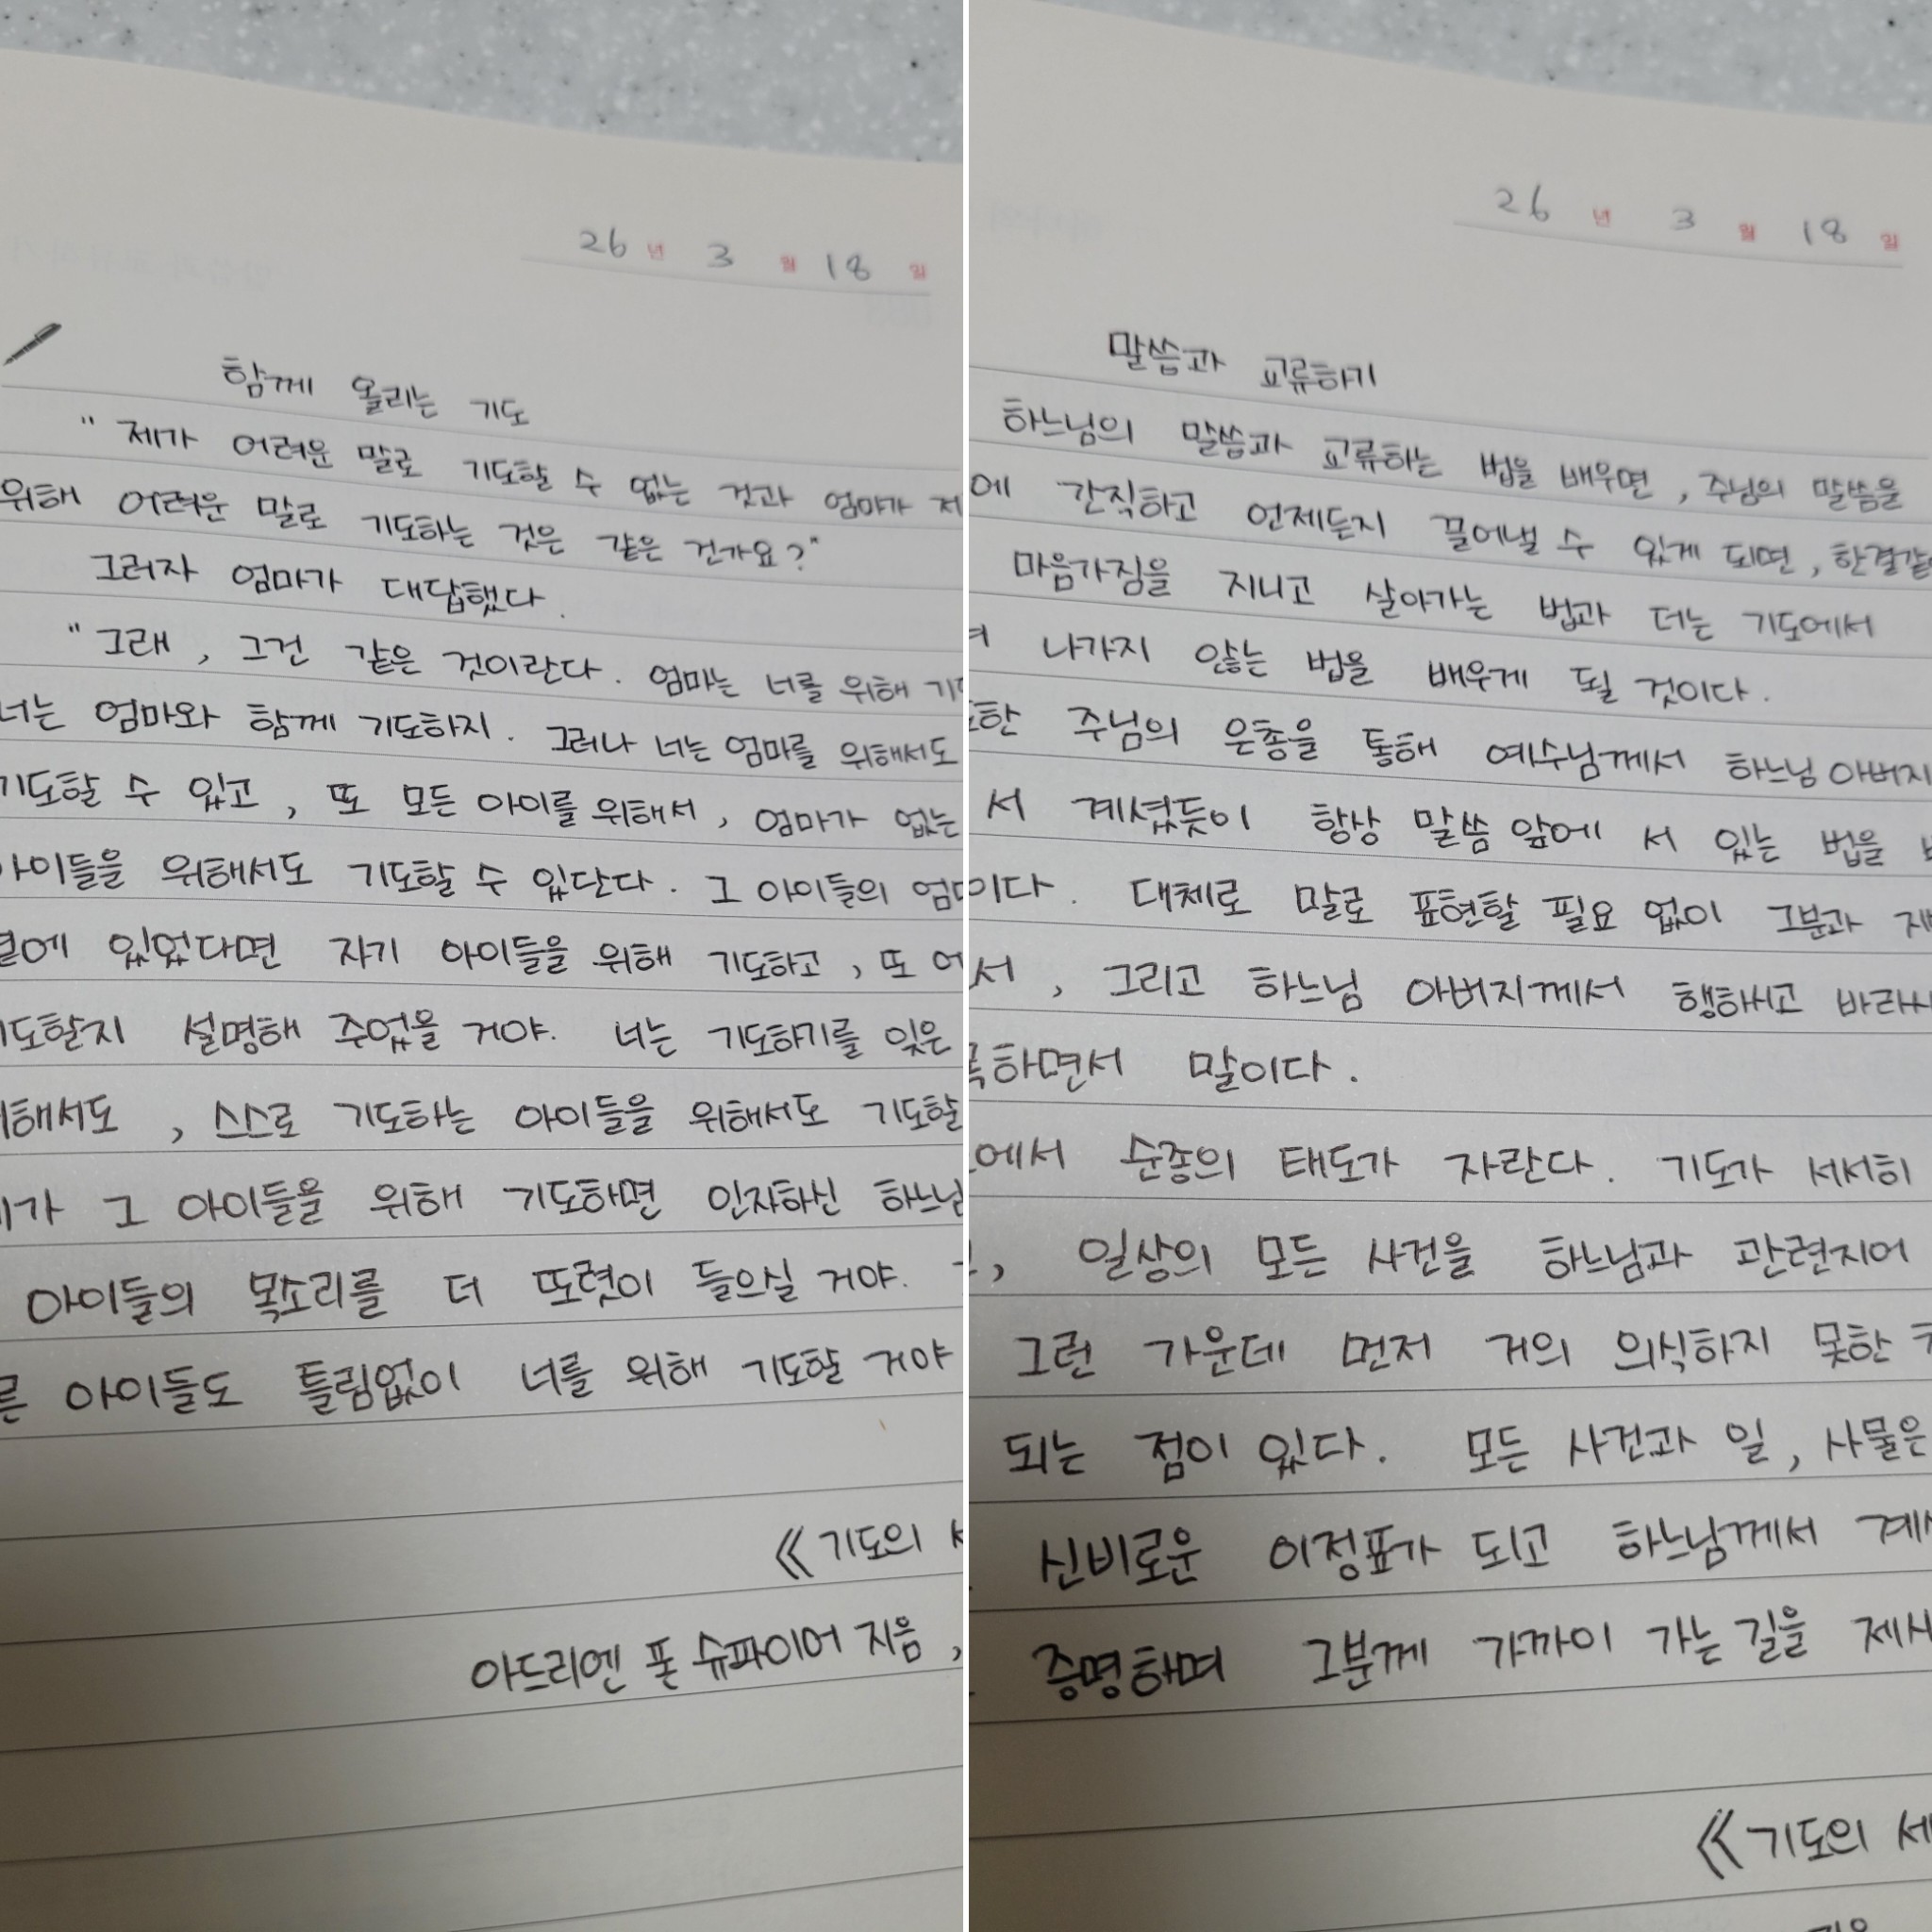 26년 3월 18일
함께 올리는 기도
" 제가 어려운 말로 기도할 수 없는 것과 엄마가 저
위해 어려운 말로 기도하는 것은 같은 건가요?"
그러자 엄마가 대답했다.
"그래, 그건 같은 것이란다. 엄마는 너를 위해
너는 엄마와 함께 기도하지. 그러나 너는 엄마를 위해서도
기도할 수 있고, 또 모든 아이를 위해서, 엄마가 없는
아이들을 위해서도 기도할 수 있단다. 그 아이들의
곁에 있었다면 자기 아이들을 위해 기도하고, 또
설명해 주었을 거야. 너는 기도하기를 잊은
위해서도, 스스로 기도하는 아이들을 위해서도 기도할
그 아이들을 위해 기도하면 인자하신 하느님
아이들의 목소리를 더 또렷이 들으실 거야.
아이들도 틀림없이 너를 위해 기도할 거야
《기도의
아드리엔 폰 슈파이어 지음,
26년 3월 18일
말씀과 교류하기
하느님의 말씀과 교류하는 법을 배우면, 주님의 말씀을
에 간직하고 언제든지 끌어낼 수 있게 되면, 한결같
마음가짐을 지니고 살아가는 법과 더는 기도에서
나가지 않는 법을 배우게 될 것이다.
또한 주님의 은총을 통해 예수님께서 하느님 아버지
서 계셨듯이 항상 말씀 앞에 서 있는 법을
이다. 대체로 말로 표현할 필요 없이 그분과
서, 그리고 하느님 아버지께서 행하시고 바라시
하면서 말이다.
에서 순종의 태도가 자란다. 기도가 서서히
, 일상의 모든 사건을 하느님과 관련지어
그런 가운데 먼저 거의 의식하지 못한
되는 점이 있다. 모든 사건과 일, 사물은
신비로운 이정표가 되고 하느님께서
증명하며 그분께 가까이 가는 길을
《기도의 세